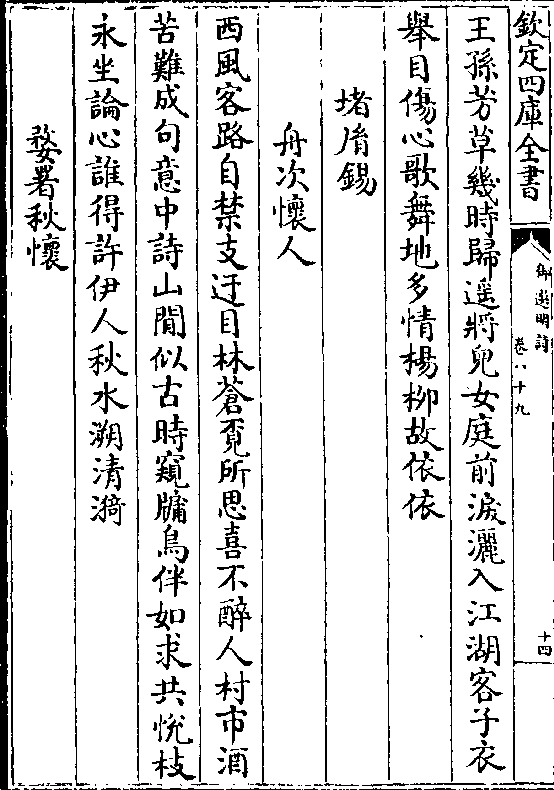 欽定四庫全書
御選明詩
卷八十九
十四
王孫芳草幾時歸遥將兒女庭前淚灑入江湖客子衣
舉目傷心歌舞地多情楊柳故依依
堵㡯錫
舟次懷人
西風客路自禁支迂目林蒼覔所思喜不醉人村市酒
苦難成句意中詩山間似古時窺牗鳥伴如求共恱枝
永坐論心誰得許伊人秋水溯清漪
婺署秋懷